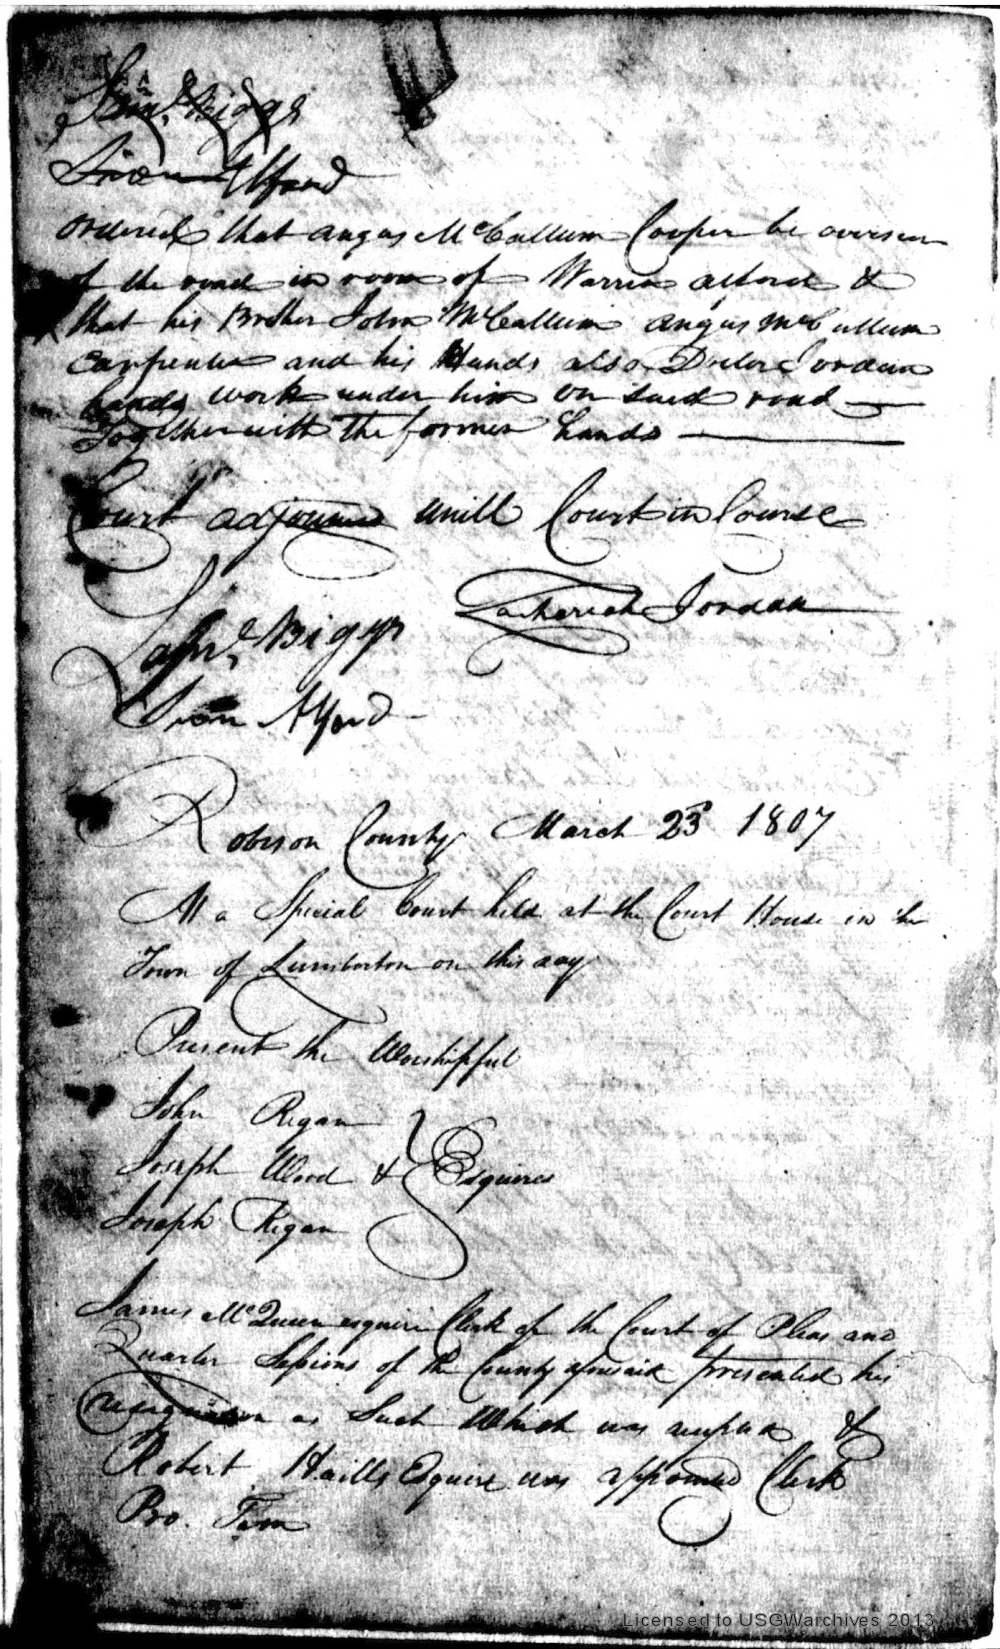 Saml. Biggs
Sion Alford
ordered that angus McCallum Cooper be overseer
of the road in room of Warren alford &
that his Brother John McCallum angus McCallum
Carpenter and his Hands also Doctor Jordan
hands work under him on said road
Together with The former hands
Court adjourned untill Court in Course
Zacheriah Jordan
Saml. Biggs
Sion Alford
Robeson County March 23d 1807
At a Special Court held at the Court House in the
Town of Lumberton on this day
Present the Worshipful
John Regan
Joseph Wood & Esquires
Joseph Regan
James McQueen esquire Clerk of the Court of Pleas and
Quarter Sessions of the County aforesaid presented his
resignation as Such Which was &
Robert Haills Esquire was appointed Clerk
Pro. Tem
Licensed to USGWarchives 2013